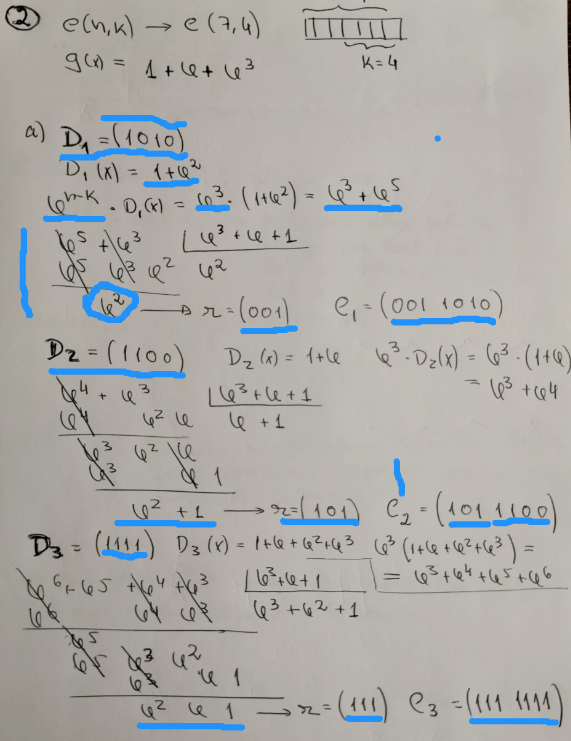 ② e(n,k) → e(7,4)
k=4
g(x) = 1 + x + x³
a) D₁ = (1010)
D₁(x) = 1+x²
x^(n-k) · D₁(x) = x³ · (1+x²) = x³ + x⁵
x⁵ + x³ | x³ + x + 1
x⁵ x³ x² x²
x² → r = (001) e₁ = (001 1010)
D₂ = (1100) D₂(x) = 1+x x³·D₂(x) = x³·(1+x)
= x³ + x⁴
x⁴ + x³ | x³ + x + 1
x⁴ x² x x + 1
x³ x² x
x³ x 1
x² + 1 → r = (101) e₂ = (101 1100)
D₃ = (1111) D₃(x) = 1+x+x²+x³ x³(1+x+x²+x³) =
= x³ + x⁴ + x⁵ + x⁶
x⁶ + x⁵ + x⁴ + x³ | x³+x+1
x⁶ x⁴ x³ x³ + x² + 1
x⁵
x⁵ x³ x²
x³ x 1
x² x 1 → r = (111) e₃ = (111 1111)